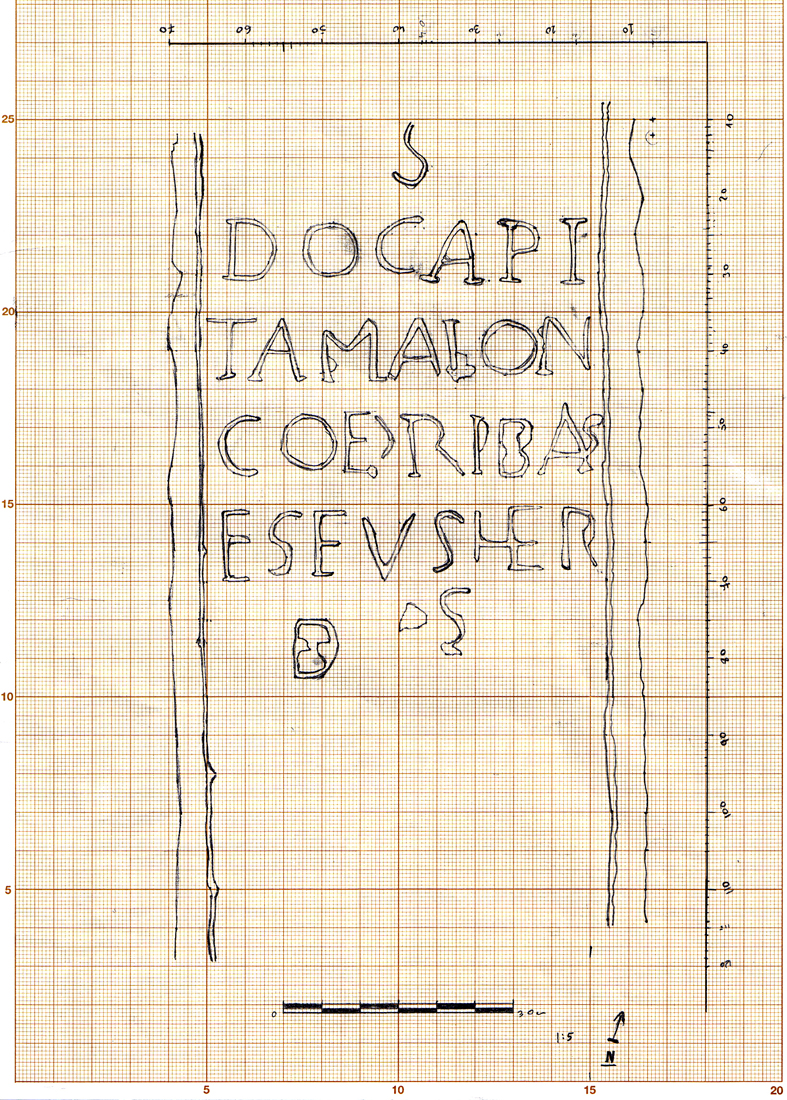 70 60 50 40 30 20 10
25
S
DOCAPI
20
TAMALON
COERIBAS
15
ESEVSHER
B S
10
5
0 30
1:5
N
5 10 15 20
10
20
30
40
50
60
70
80
90
100
110